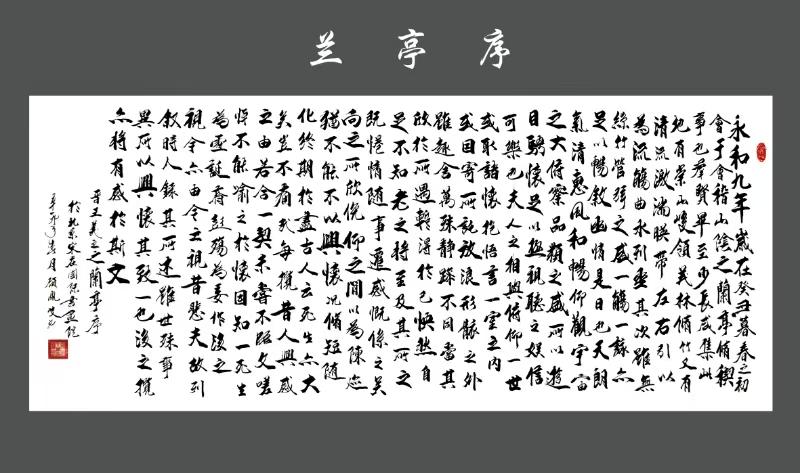 兰亭序
永和九年歲在癸丑暮春之初
會于會稽山陰之蘭亭脩稧
事也羣賢畢至少長咸集此
地有崇山峻領茂林脩竹又有
清流激湍暎帶左右引以
為流觴曲水列坐其次雖無
絲竹管弦之盛一觴一詠亦
足以暢敘幽情是日也天朗
氣清惠風和暢仰觀宇宙
之大俯察品類之盛所以遊
目騁懷足以極視聽之娛信
可樂也夫人之相與俯仰一世
或取諸懷抱悟言一室之內
或因寄所託放浪形骸之外
雖趣舍萬殊靜躁不同當其
欣於所遇輒得於己怏然自
足不知老之將至及其所之
既惓情隨事遷感慨係之矣
向之所欣俛仰之間以為陳迹
猶不能不以興懷況脩短隨
化終期於盡古人云死生亦大
矣豈不痛哉每攬昔人興感
之由若合一契未嘗不臨文嗟
悼不能喻之於懷固知一死生
為虛誕齊彭殤為妄作後之
視今亦由今之視昔悲夫故列
敘時人錄其所述雖世殊事
異所以興懷其致一也後之攬
亦將有感於斯文
晉王羲之之蘭亭序
於北京